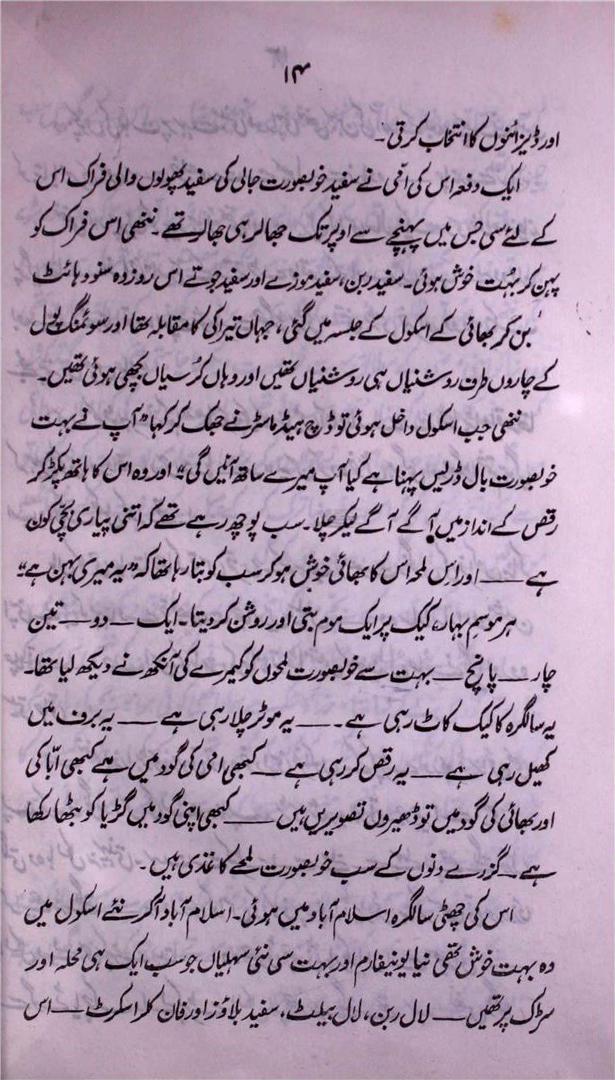 ۱۴
اور ڈیزائنوں کا انتخاب کرتی۔
ایک دفعہ اس کی امّی نے سفید خوبصورت جالی کی سفید پھولوں والی فراک اس
کے لئے سی جس میں پہنچے سے اوپر تک جھالر ہی جھالر تھے۔ ننھی اس فراک کو
پہن کر بہُت خوش ہوئی۔ سفید ربن، سفید موزے اور سفید جوتے اس روز وہ سنو وہائٹ
بن کر بھائی کے اسکول کے جلسہ میں گئی، جہاں تیراکی کا مقابلہ تھا اور سوئمنگ پول
کے چاروں طرف روشنیاں ہی روشنیاں تھیں اور وہاں کُرسیاں بچھی ہوئی تھیں۔
ننھی جب اسکول داخل ہوئی تو ڈچ ہیڈ ماسٹر نے جھک کر کہا "آپ نے بہت
خوبصورت بال ڈریس پہنا ہے کیا آپ میرے ساتھ آئیں گی" اور وہ اس کا ہاتھ پکڑ کر
رقص کے انداز میں آگے آگے لیکر چلا۔ سب پوچھ رہے تھے کہ اتنی پیاری بچّی کون
ہے ـــــ اور اس لمحہ اس کا بھائی خوش ہو کر سب کو بتا رہا تھا کہ "یہ میری بہن ہے"
ہر موسم بہار، کیک پر ایک موم بتی اور روشن کر دیتا۔ ایک ـــ دو ـــ تین
چار ـــ پانچ ـــ بہت سے خوبصورت لمحوں کو کیمرے کی آنکھ نے دیکھ لیا تھا۔
یہ سالگرہ کا کیک کاٹ رہی ہے۔ ـــــ یہ موٹر چلا رہی ہے ـــــ یہ برف میں
کھیل رہی ہے ـــــ یہ رقص کر رہی ہے ـــ کبھی امی کی گود میں ہے کبھی ابّا کی
اور بھائی کی گود میں تو ڈھیروں تصویریں ہیں ـــــ کبھی اپنی گود میں گڑیا کو بٹھا رکھا
ہے ـــ گزرے دنوں کے سب خوبصورت لمحے کاغذی ہیں۔
اس کی چھٹی سالگرہ اسلام آباد میں ہوئی۔ اسلام آباد آکر نئے اسکول میں
وہ بہت خوش تھی نیا یونیفارم اور بہت سی نئی سہلیاں جو سب ایک ہی محلہ اور
سڑک پر تھیں ـــــ لال ربن، لال بیلٹ، سفید بلاؤز اور فان کلر اسکرٹ ـــ اس